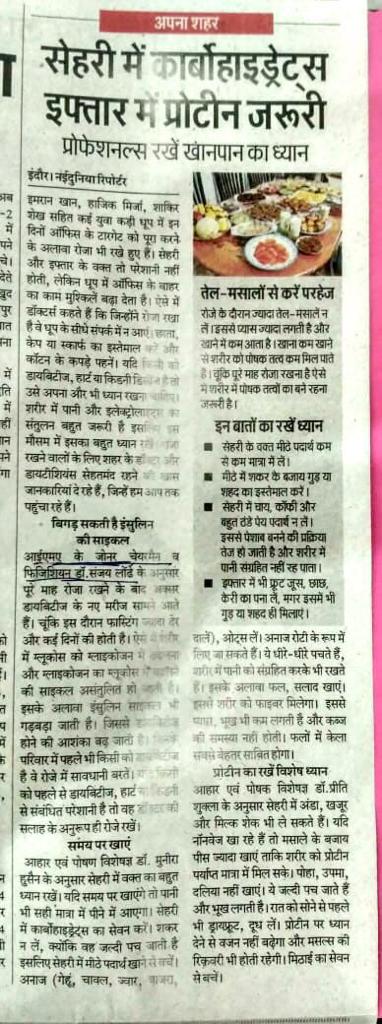 अपना शहर
सेहरी में कार्बोहाइड्रेट्स
इफ्तार में प्रोटीन जरूरी
प्रोफेशनल्स रखें खानपान का ध्यान
इंदौर। नईदुनिया रिपोर्टर
इमरान खान, हाजिक मिर्जा, शाकिर
शेख सहित कई युवा कड़ी धूप में इन
दिनों ऑफिस के टारगेट को पूरा करने
के अलावा रोजा भी रखे हुए हैं। सेहरी
और इफ्तार के वक्त तो परेशानी नहीं
होती, लेकिन धूप में ऑफिस के बाहर
का काम मुश्किलें बढ़ा देता है। ऐसे में
डॉक्टर्स कहते हैं कि जिन्होंने रोजा रखा
है वे धूप के सीधे संपर्क में न आएं। छाता,
केप या स्कार्फ का इस्तेमाल करें और
कॉटन के कपड़े पहनें। यदि किसी को
डायबिटीज, हार्ट या किडनी डिसीज है तो
उसे अपना और भी ध्यान रखना चाहिए।
शरीर में पानी और इलेक्ट्रोलाइट्स का
संतुलन बहुत जरूरी है इसलिए इस
मौसम में इसका बहुत ध्यान रखें। रोजा
रखने वालों के लिए शहर के डॉक्टर और
डायटीशियंस सेहतमंद रहने की खास
जानकारियां दे रहे हैं, जिन्हें हम आप तक
पहुंचा रहे हैं।
बिगड़ सकती है इंसुलिन
की साइकल
आईएमए के जोनर चेयरमैन व
फिजिशियन डॉ. संजय लोंढे के अनुसार
पूरे माह रोजा रखने के बाद अक्सर
डायबिटीज के नए मरीज सामने आते
हैं। चूंकि इस दौरान फास्टिंग ज्यादा देर
और कई दिनों की होती है। ऐसे में शरीर
में ग्लूकोस को ग्लाइकोजन में बदलना
और ग्लाइकोजन का ग्लूकोस में बदलने
की साइकल असंतुलित हो जाती है।
इसके अलावा इंसुलिन साइकल भी
गड़बड़ा जाती है। जिससे डायबिटीज
होने की आशंका बढ़ जाती है। जिनके
परिवार में पहले भी किसी को डायबिटीज
है वे रोजे में सावधानी बरतें। यदि किसी
को पहले से डायबिटीज, हार्ट या किडनी
से संबंधित परेशानी है तो वह डॉक्टर की
सलाह के अनुरूप ही रोजे रखें।
समय पर खाएं
आहार एवं पोषण विशेषज्ञ डॉ. मुनीरा
हुसैन के अनुसार सेहरी में वक्त का बहुत
ध्यान रखें। यदि समय पर खाएंगे तो पानी
भी सही मात्रा में पीने में आएगा। सेहरी
में कार्बोहाइड्रेट्स का सेवन करें। शकर
न लें, क्योंकि वह जल्दी पच जाती है
इसलिए सेहरी में मीठे पदार्थ खाने से बचें।
अनाज (गेहूं, चावल, ज्वार, बाजरा,
तेल-मसालों से करें परहेज
रोजे के दौरान ज्यादा तेल-मसाले न
लें। इससे प्यास ज्यादा लगती है और
खाने में कम आता है। खाना कम खाने
से शरीर को पोषक तत्व कम मिल पाते
हैं। चूंकि पूरे माह रोजा रखना है ऐसे
में शरीर में पोषक तत्वों का बने रहना
जरूरी है।
इन बातों का रखें ध्यान
■ सेहरी के वक्त मीठे पदार्थ कम
से कम मात्रा में लें।
■ मीठे में शकर के बजाय गुड़ या
शहद का इस्तेमाल करें।
■ सेहरी में चाय, कॉफी और
बहुत ठंडे पेय पदार्थ न लें।
इससे पेशाब बनने की प्रक्रिया
तेज हो जाती है और शरीर में
पानी संग्रहित नहीं रह पाता।
■ इफ्तार में भी फ्रूट जूस, छाछ,
केरी का पना लें, मगर इसमें भी
गुड़ या शहद ही मिलाएं।
दालें), ओट्स लें। अनाज रोटी के रूप में
लिए जा सकते हैं। ये धीरे-धीरे पचते हैं,
शरीर में पानी को संग्रहित करके भी रखते
हैं। इसके अलावा फल, सलाद खाएं।
इससे शरीर को फाइबर मिलेगा। इससे
प्यास, भूख भी कम लगती है और कब्ज
की समस्या नहीं होती। फलों में केला
सबसे बेहतर साबित होगा।
प्रोटीन का रखें विशेष ध्यान
आहार एवं पोषक विशेषज्ञ डॉ. प्रीति
शुक्ला के अनुसार सेहरी में अंडा, खजूर
और मिल्क शेक भी ले सकते हैं। यदि
नॉनवेज खा रहे हैं तो मसाले के बजाय
पीस ज्यादा खाएं ताकि शरीर को प्रोटीन
पर्याप्त मात्रा में मिल सके। पोहा, उपमा,
दलिया नहीं खाएं। ये जल्दी पच जाते हैं
और भूख लगती है। रात को सोने से पहले
भी ड्रायफ्रूट, दूध लें। प्रोटीन पर ध्यान
देने से वजन नहीं बढ़ेगा और मसल्स की
रिकवरी भी होती रहेगी। मिठाई का सेवन
से बचें।